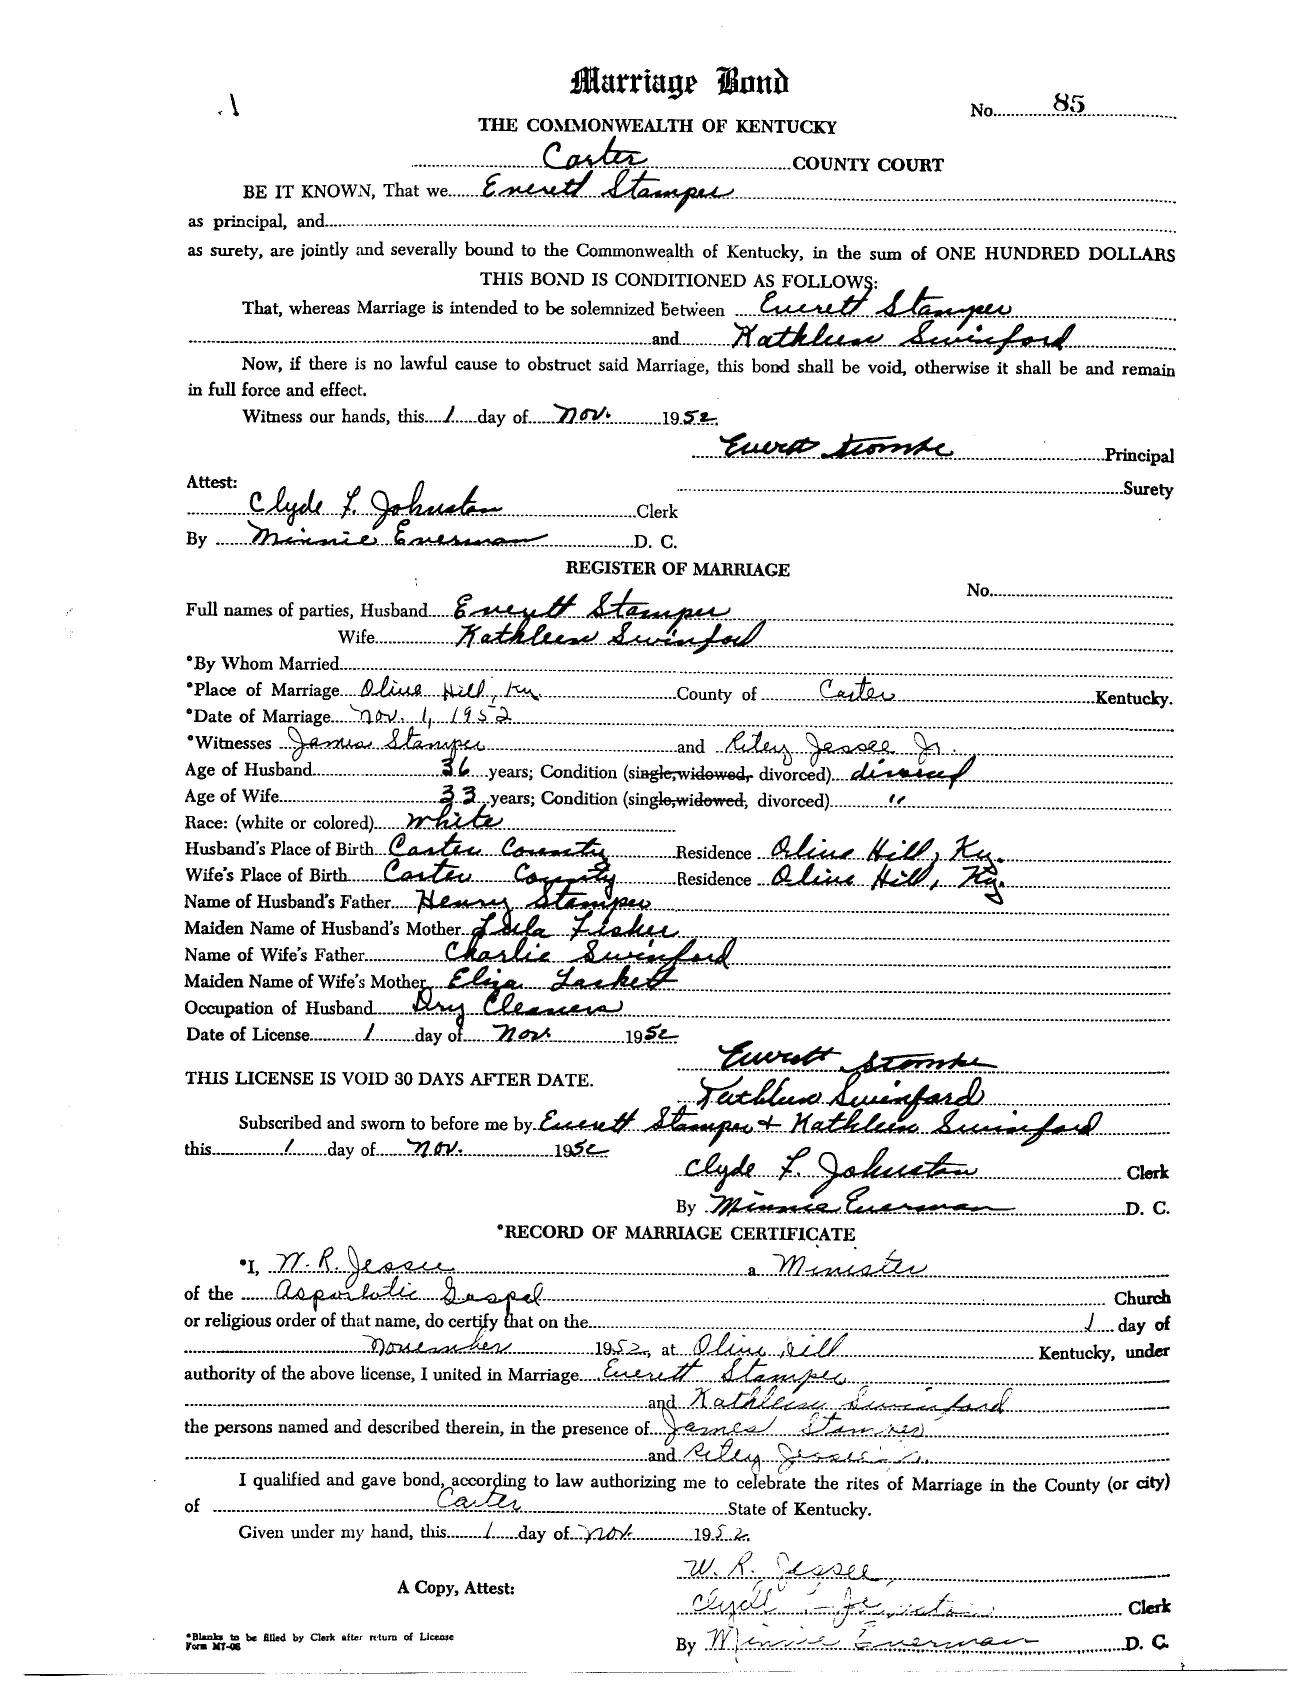 Marriage Bond
No. 85
THE COMMONWEALTH OF KENTUCKY
Carter COUNTY COURT
BE IT KNOWN, That we Everett Stamper
as principal, and
as surety, are jointly and severally bound to the Commonwealth of Kentucky, in the sum of ONE HUNDRED DOLLARS
THIS BOND IS CONDITIONED AS FOLLOWS:
That, whereas Marriage is intended to be solemnized between Everett Stamper
and Kathleen Swinford
Now, if there is no lawful cause to obstruct said Marriage, this bond shall be void, otherwise it shall be and remain
in full force and effect.
Witness our hands, this 1 day of Nov. 1952.
Everett Principal
Surety
Attest:
Clyde F. Johnston Clerk
By Minnie Everman D. C.
REGISTER OF MARRIAGE
No.
Full names of parties, Husband Everett Stamper
Wife Kathleen Swinford
*By Whom Married
*Place of Marriage Olive Hill, Ky. County of Carter Kentucky.
*Date of Marriage Nov. 1, 1952
*Witnesses James Stamper and Riley Jessee Jr.
Age of Husband 36 years; Condition (single, widowed, divorced) divorced
Age of Wife 33 years; Condition (single, widowed, divorced) "
Race: (white or colored) White
Husband's Place of Birth Carter County Residence Olive Hill, Ky.
Wife's Place of Birth Carter County Residence Olive Hill, Ky.
Name of Husband's Father Henry Stamper
Maiden Name of Husband's Mother Lula Fisher
Name of Wife's Father Charlie Swinford
Maiden Name of Wife's Mother Eliza
Occupation of Husband Dry Cleaners
Date of License 1 day of Nov. 1952
Everett
THIS LICENSE IS VOID 30 DAYS AFTER DATE.
Kathleen Swinford
Subscribed and sworn to before me by Everett Stamper & Kathleen Swinford
this 1 day of Nov. 1952
Clyde F. Johnston Clerk
By Minnie Everman D. C.
*RECORD OF MARRIAGE CERTIFICATE
*I, W. R. Jessee a Minister
of the Gospel Church
or religious order of that name, do certify that on the 1 day of
November 1952, at Olive Hill Kentucky, under
authority of the above license, I united in Marriage Everett Stamper
and Kathleen Swinford
the persons named and described therein, in the presence of James Stamper
and Riley Jessee Jr.
I qualified and gave bond, according to law authorizing me to celebrate the rites of Marriage in the County (or city)
of Carter State of Kentucky.
Given under my hand, this 1 day of Nov. 1952.
W. R. Jessee
A Copy, Attest:
Clyde F. Johnston Clerk
*Blanks to be filled by Clerk after return of License
Form M7-06
By Minnie Everman D. C.